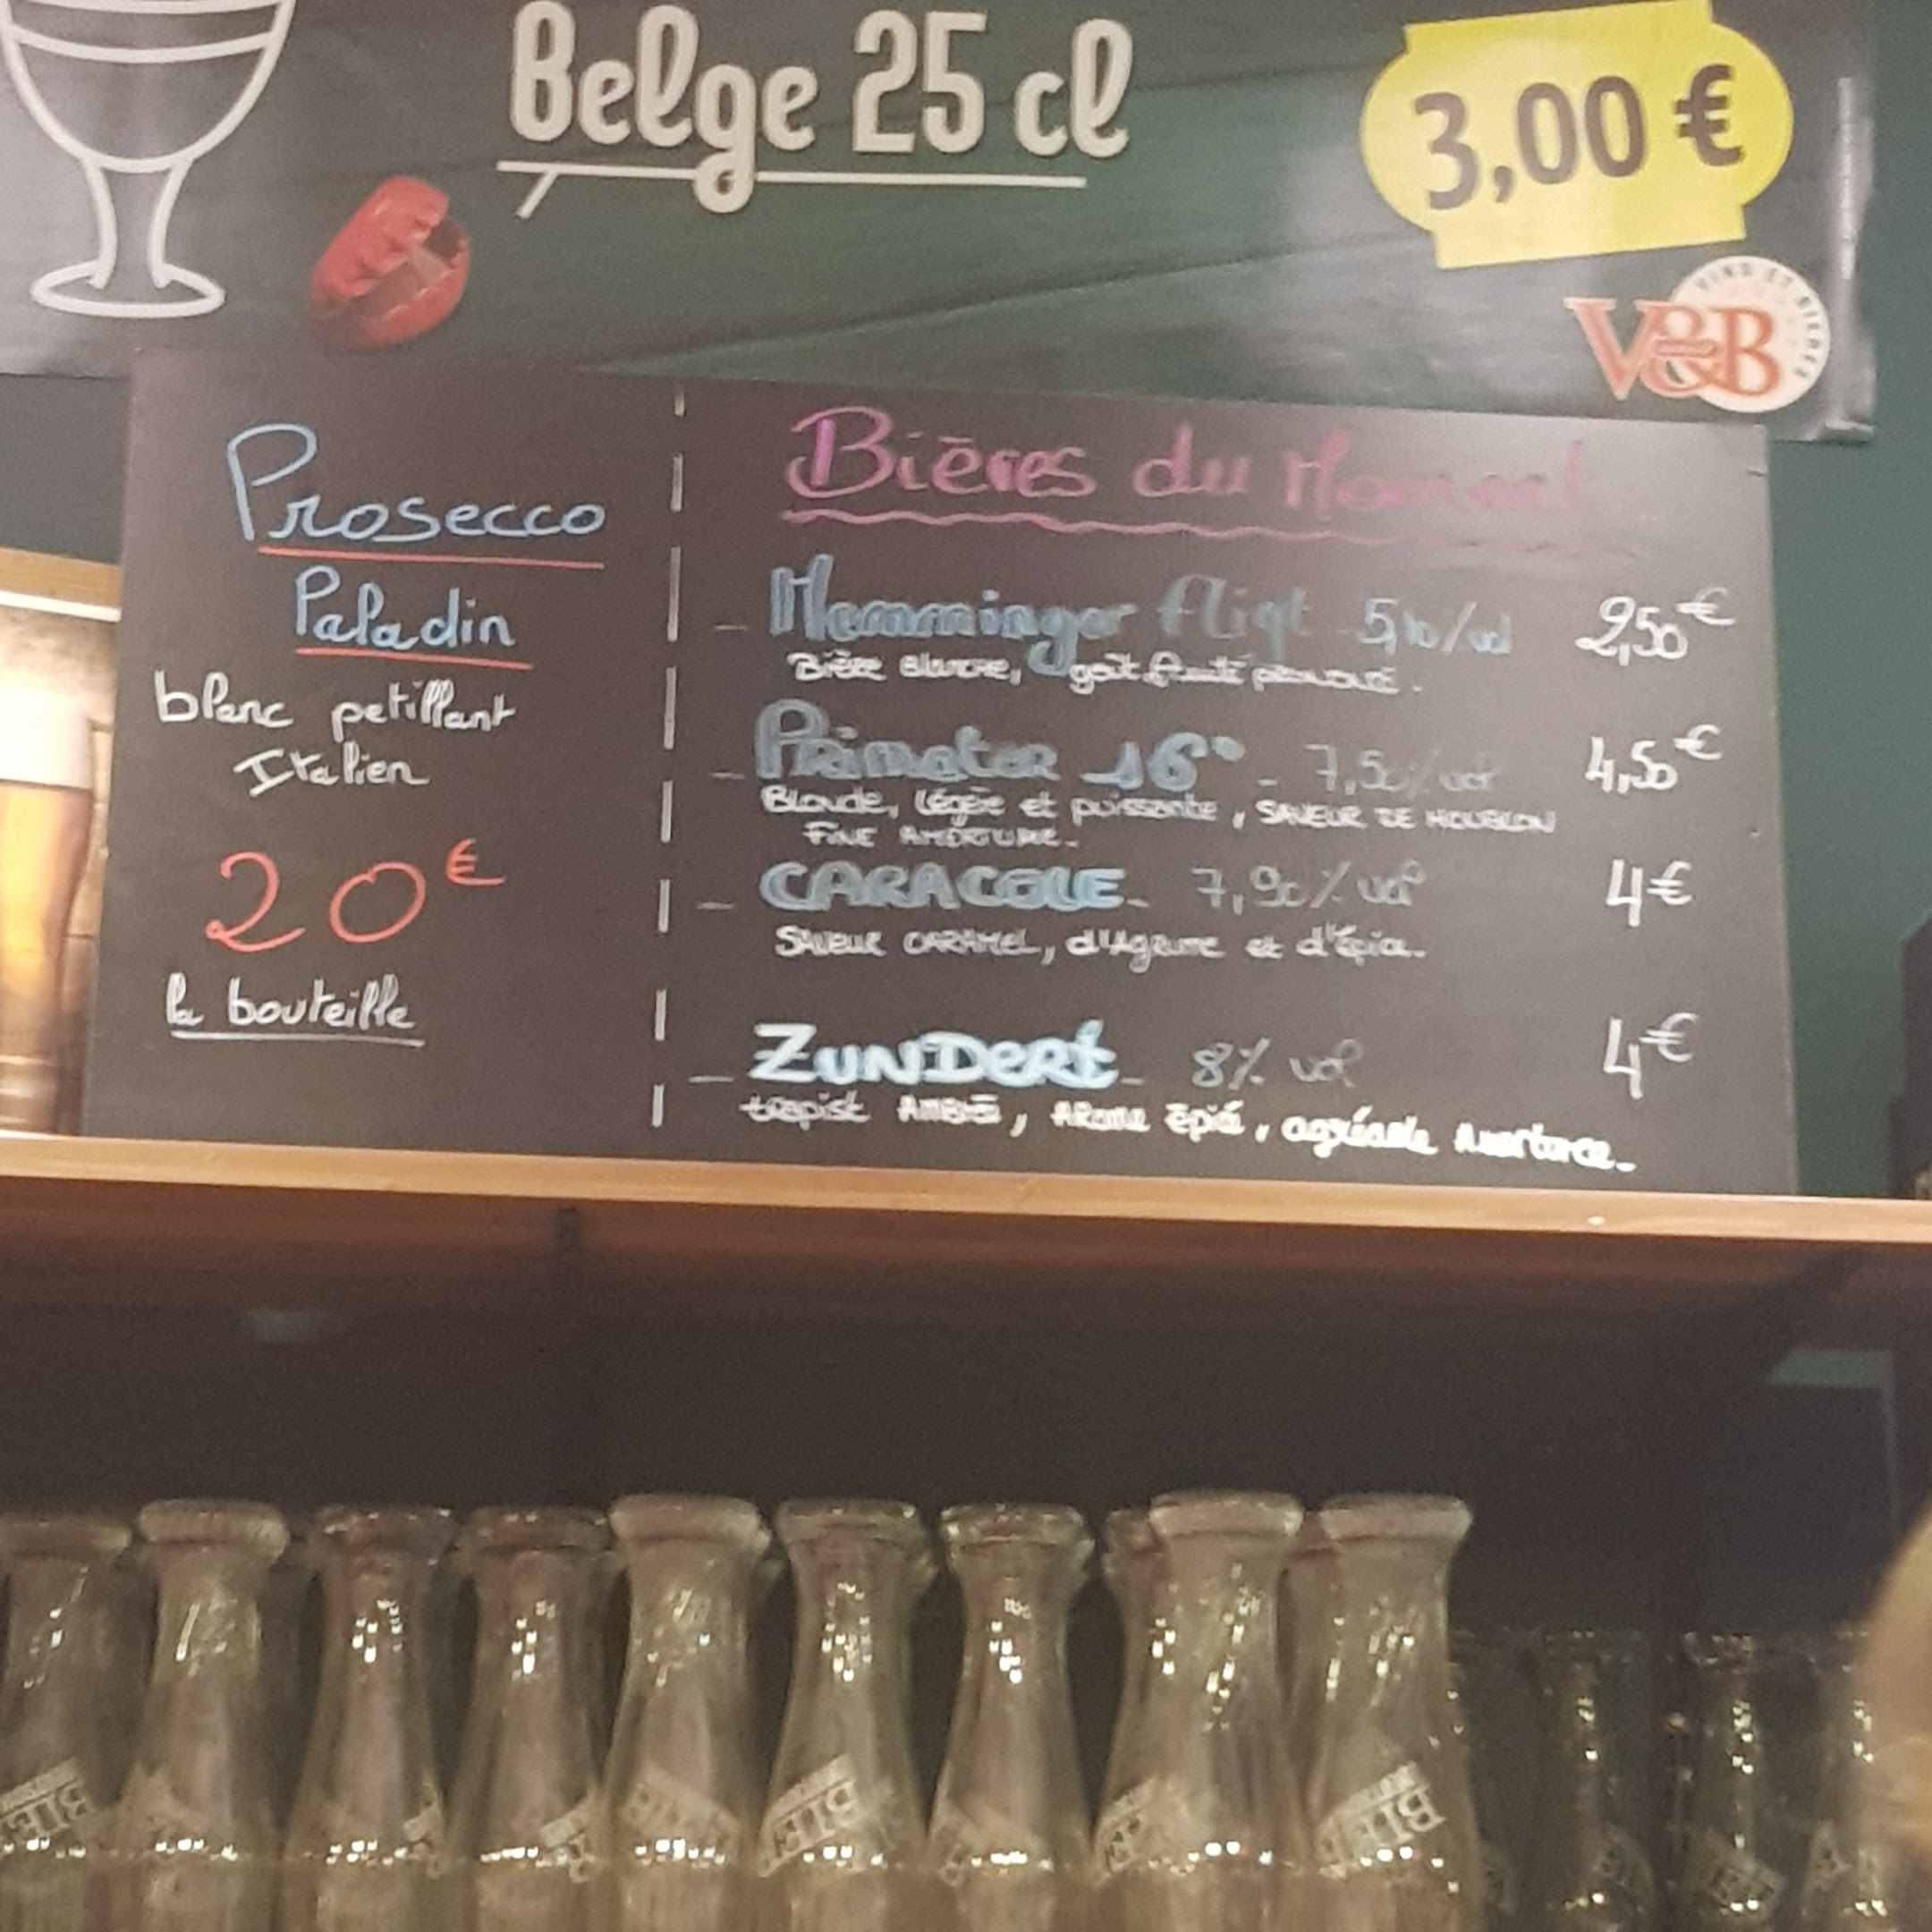 Belge 25 cl
3,00 €
VINS ET BIERES
V&B
Prosecco
Paladin
blanc petillant
Italien
20€
la bouteille
Bières du Moment
- Memminger fligt 5,10%/vol 2,50€
Bière Blanche, goût fruité prononcé.
- Primator 16° - 7,50% vol 4,50€
Blonde, légère et puissante, SAVEUR DE HOUBLON
FINE AMERTUME.
- CARACOLE - 7,90% vol 4€
SAVEUR CARAMEL, d'Agrume et d'épice.
- ZUNDERt - 8% vol 4€
trapist AMBRÉ, ARome épicé, agréable Amertume.
BIER
BIER
BIER
BIER